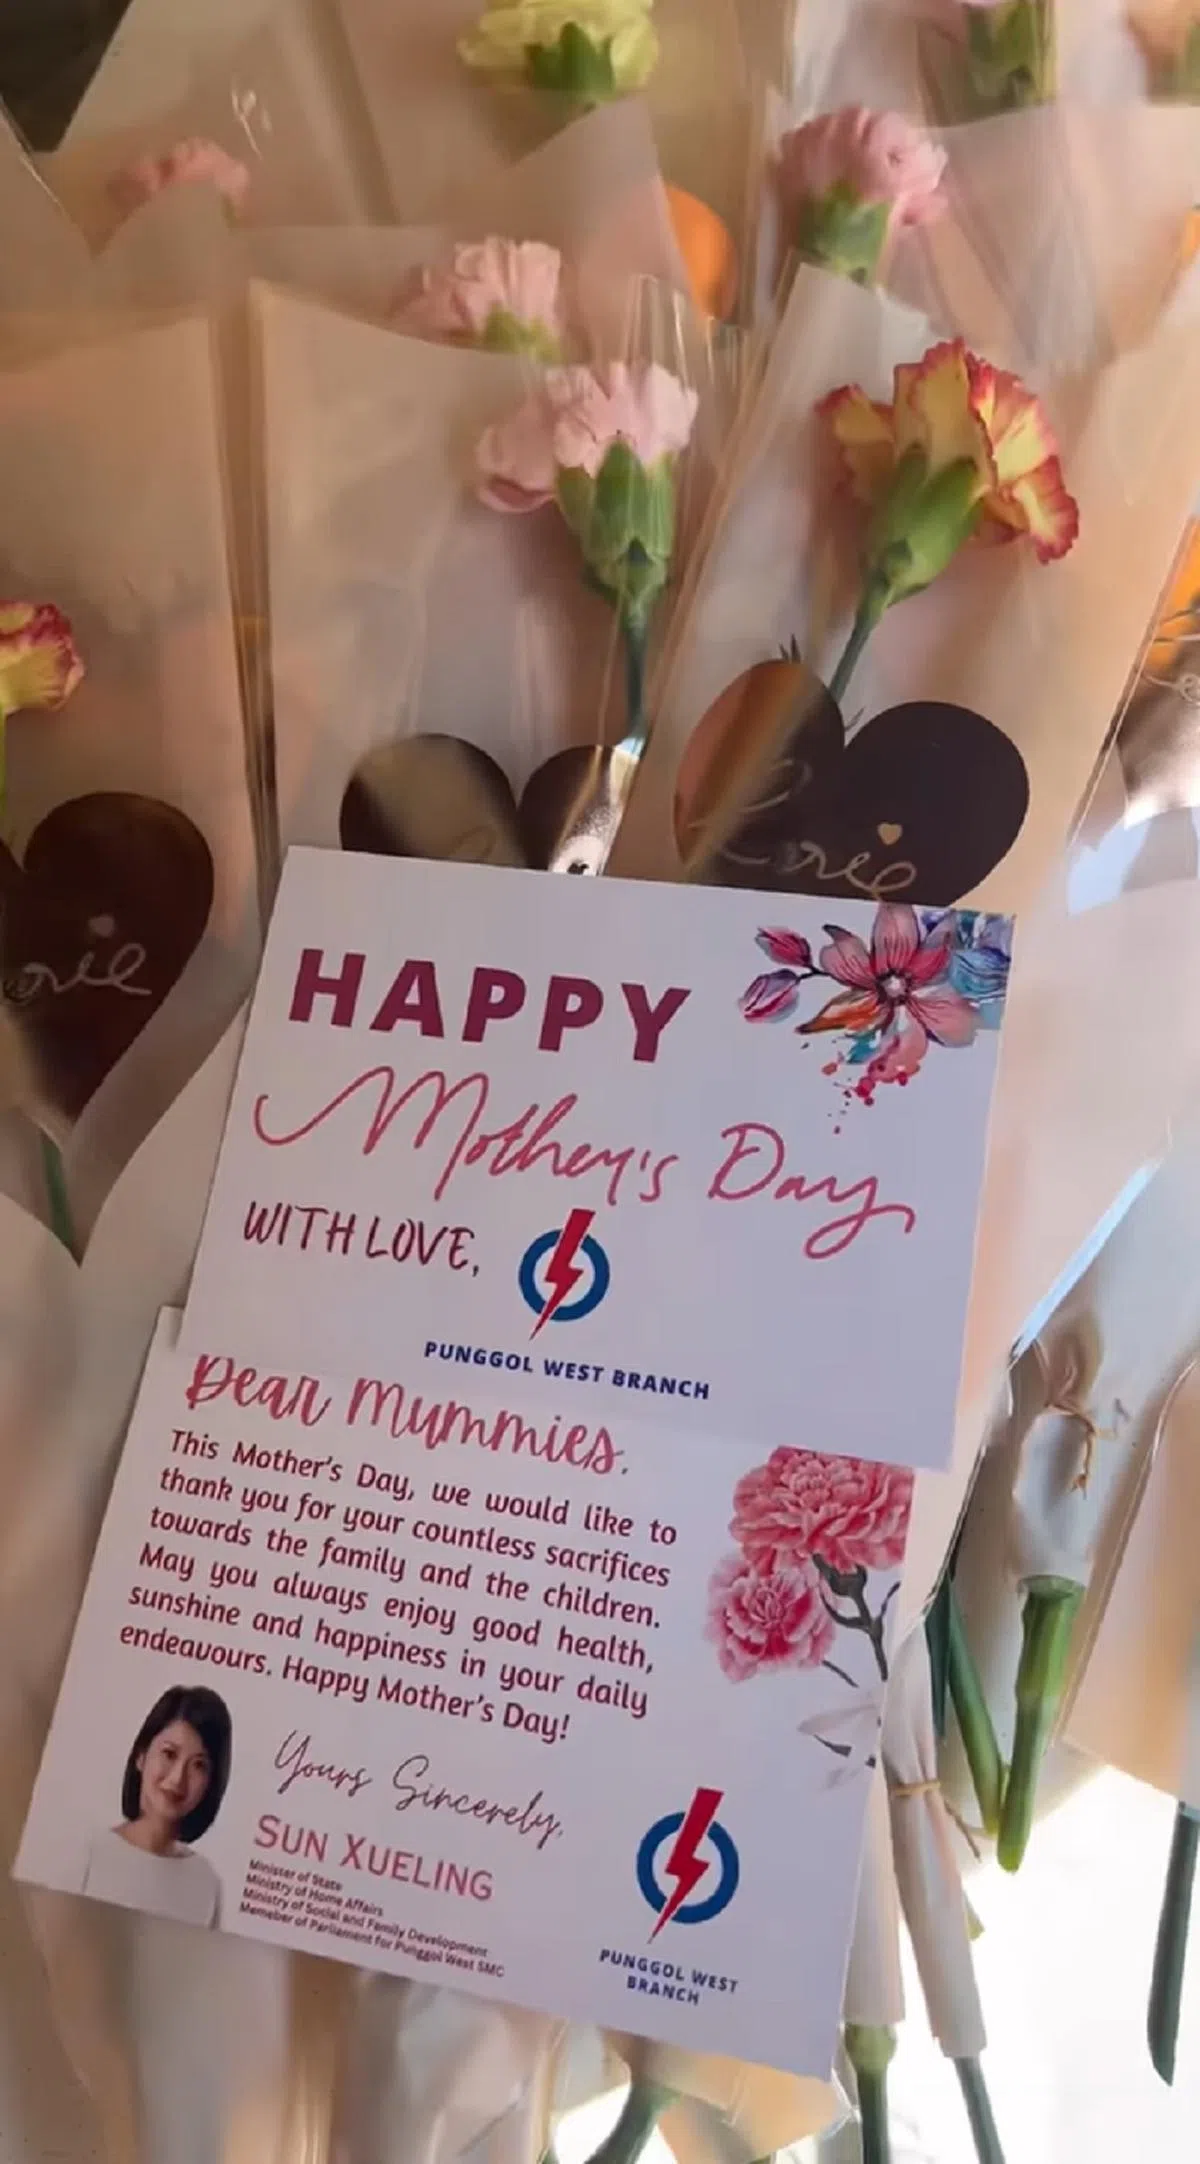 Love
orie
HAPPY
Mother's Day
WITH LOVE,
PUNGGOL WEST BRANCH
Dear Mummies,
This Mother's Day, we would like to
thank you for your countless sacrifices
towards the family and the children.
May you always enjoy good health,
sunshine and happiness in your daily
endeavours. Happy Mother's Day!
Yours Sincerely,
SUN XUELING
Minister of State
Ministry of Home Affairs
Ministry of Social and Family Development
Memeber of Parliament for Punggol West SMC
PUNGGOL WEST
BRANCH